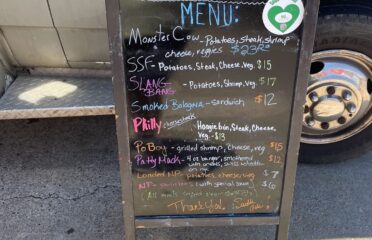 MENU:
Monster Cow - Potatoes, steak, shrimp
cheese, veggies $23
SSF - Potatoes, Steak, Cheese, Veg. $15
SLANG - Potatoes, Shrimp, Veg. $17
BANG
Smoked Bologna - sandwich $12
Philly cheesesteak Hoagie bun, Steak, Cheese,
Veg. - $13
Po Boy - grilled shrimp, cheese, veg $15
Patty Mack - 4 oz burger, smothered
with onions,
on rye
Loaded NPs potatoes, cheese, veg $7
(with special sauce) $6
Thank You!